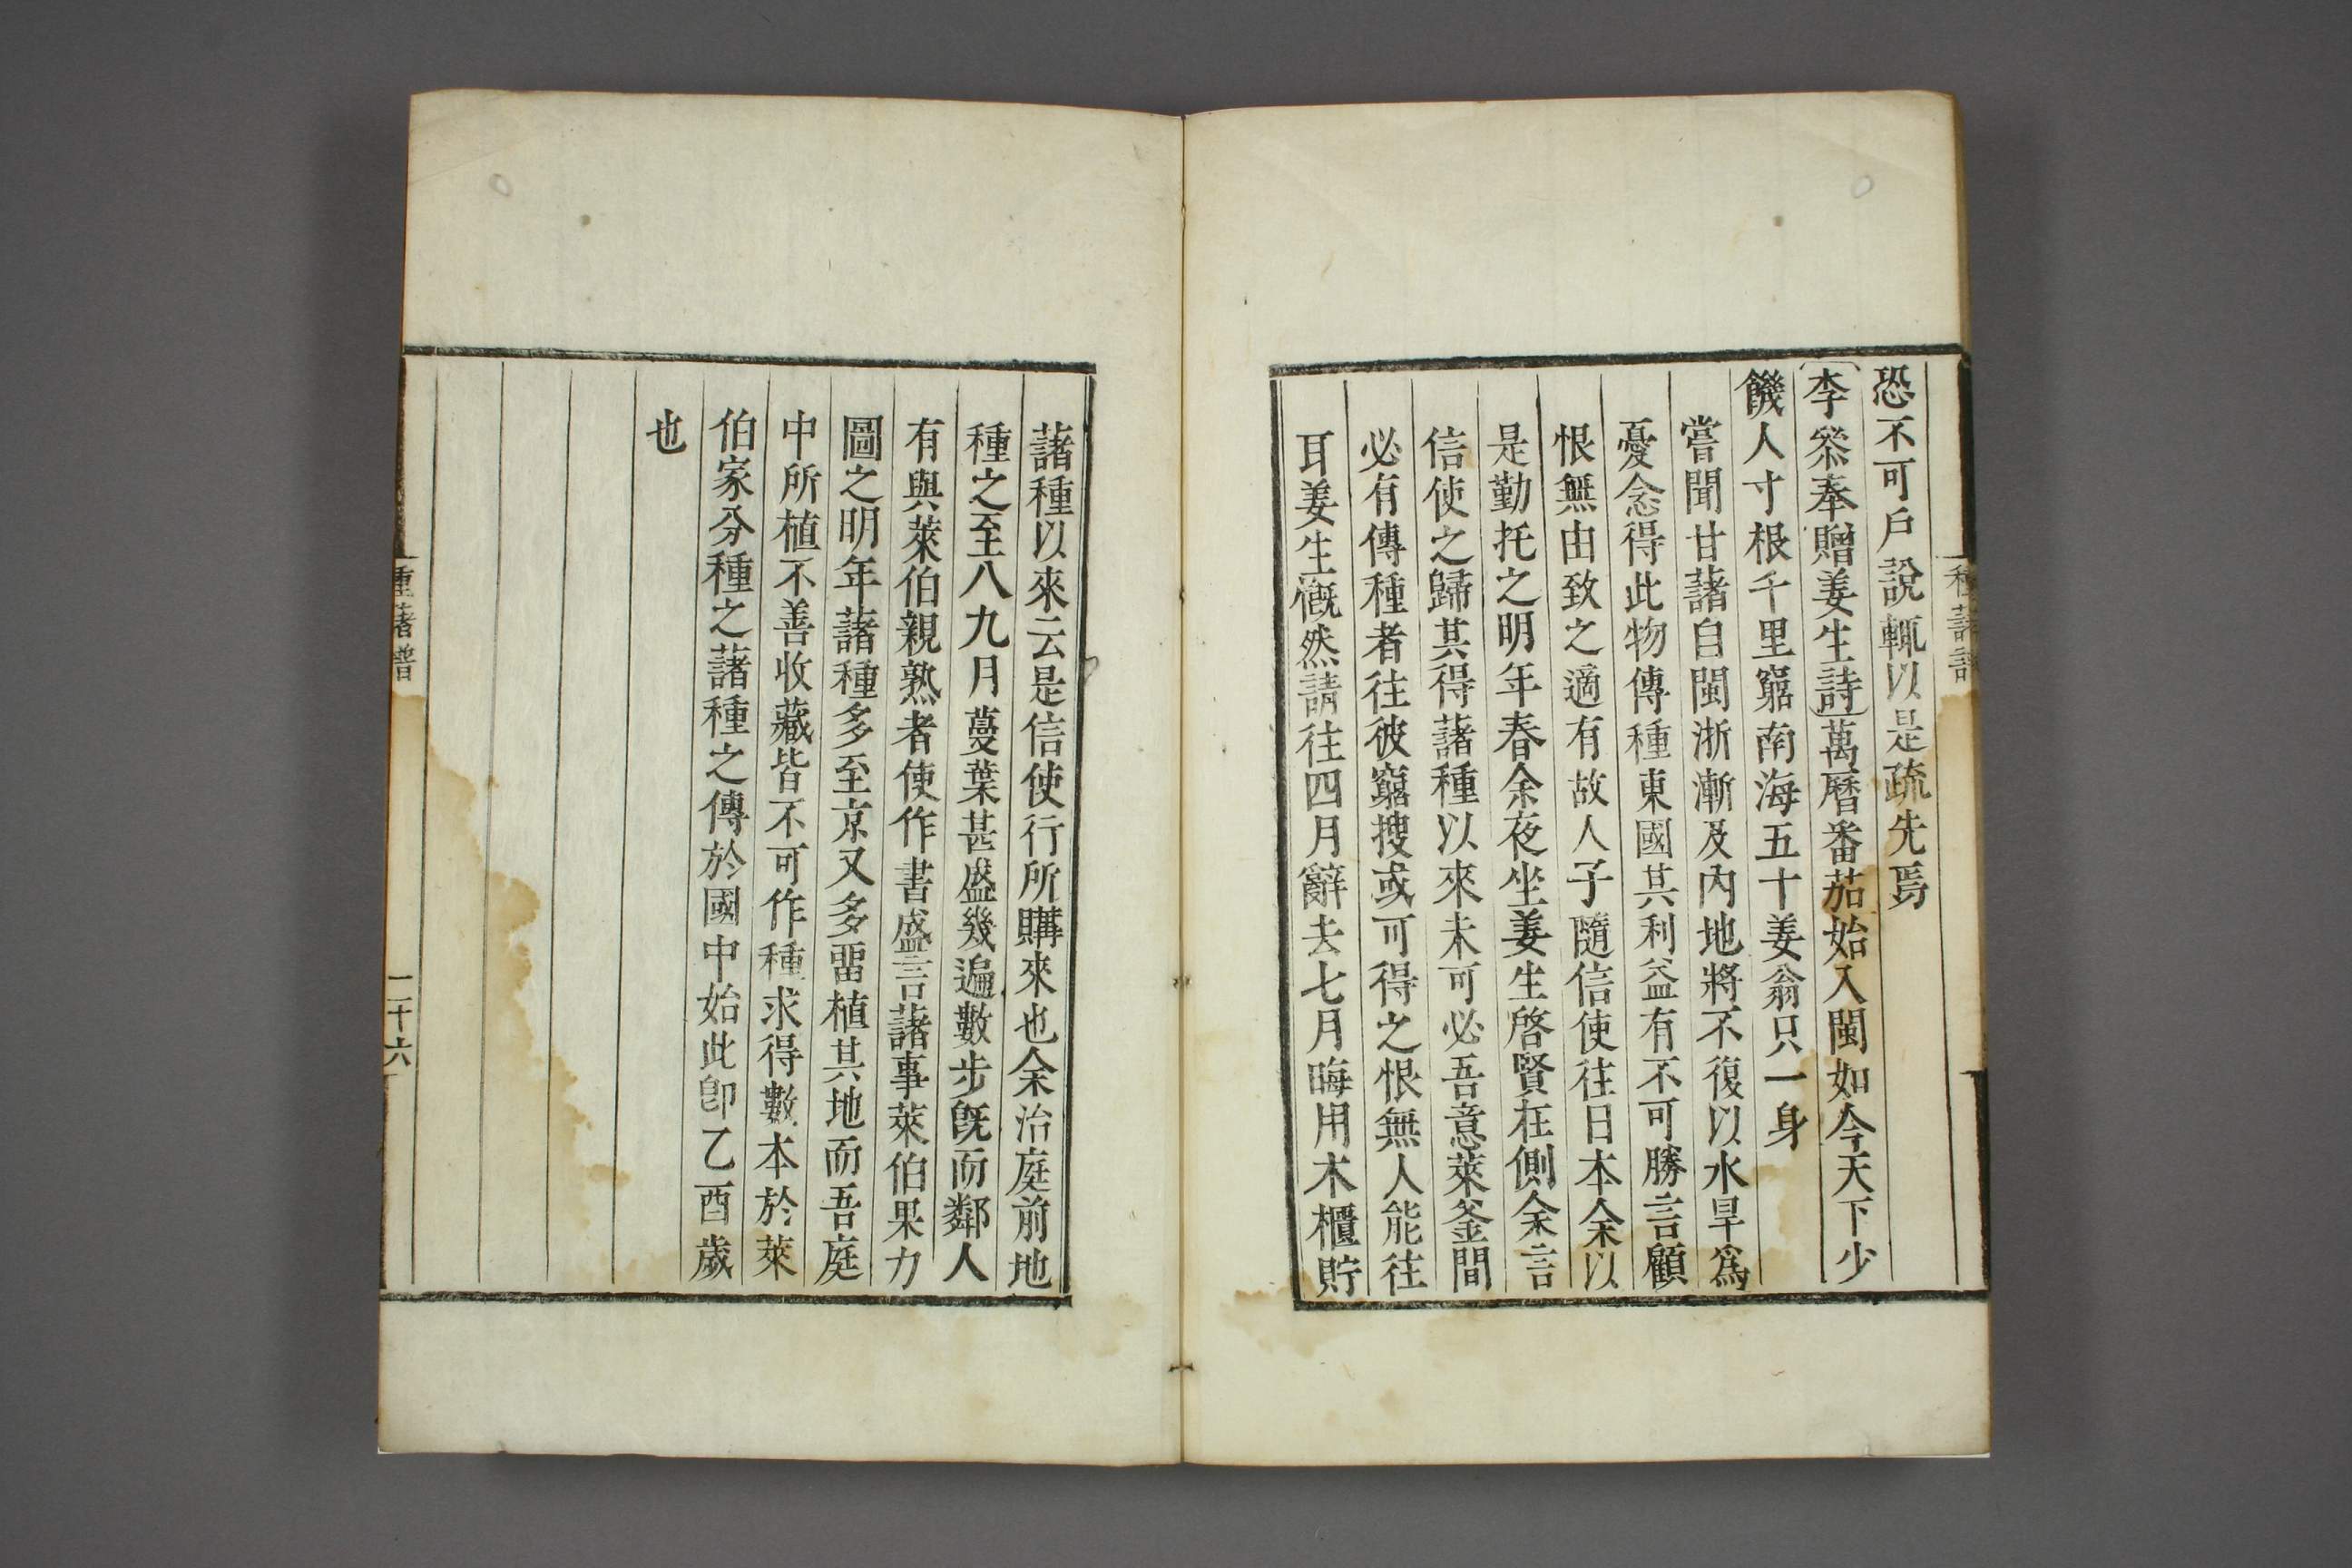 種藷譜
恐不可戶說輒以是疏先焉
李叅奉贈姜生詩萬曆番茄始入閩如今天下少
饑人寸根千里窮南海五十姜翁只一身
嘗聞甘藷自閩浙漸及內地將不復以水旱爲
憂念得此物傳種東國其利益有不可勝言顧
恨無由致之適有故人子隨信使往日本余以
是勤托之明年春余夜坐姜生啓賢在側余言
信使之歸其得藷種以來未可必吾意萊釜間
必有傳種者往彼窮搜或可得之恨無人能往
耳姜生慨然請往四月辭去七月晦用木櫃貯
藷種以來云是信使行所購來也余治庭前地
種之至八九月蔓葉甚盛幾遍數步旣而鄰人
有與萊伯親熟者使作書盛言藷事萊伯果力
圖之明年藷種多至京又多畱植其地而吾庭
中所植不善收藏皆不可作種求得數本於萊
伯家分種之藷種之傳於國中始此卽乙酉歲
也
種藷譜
二十六